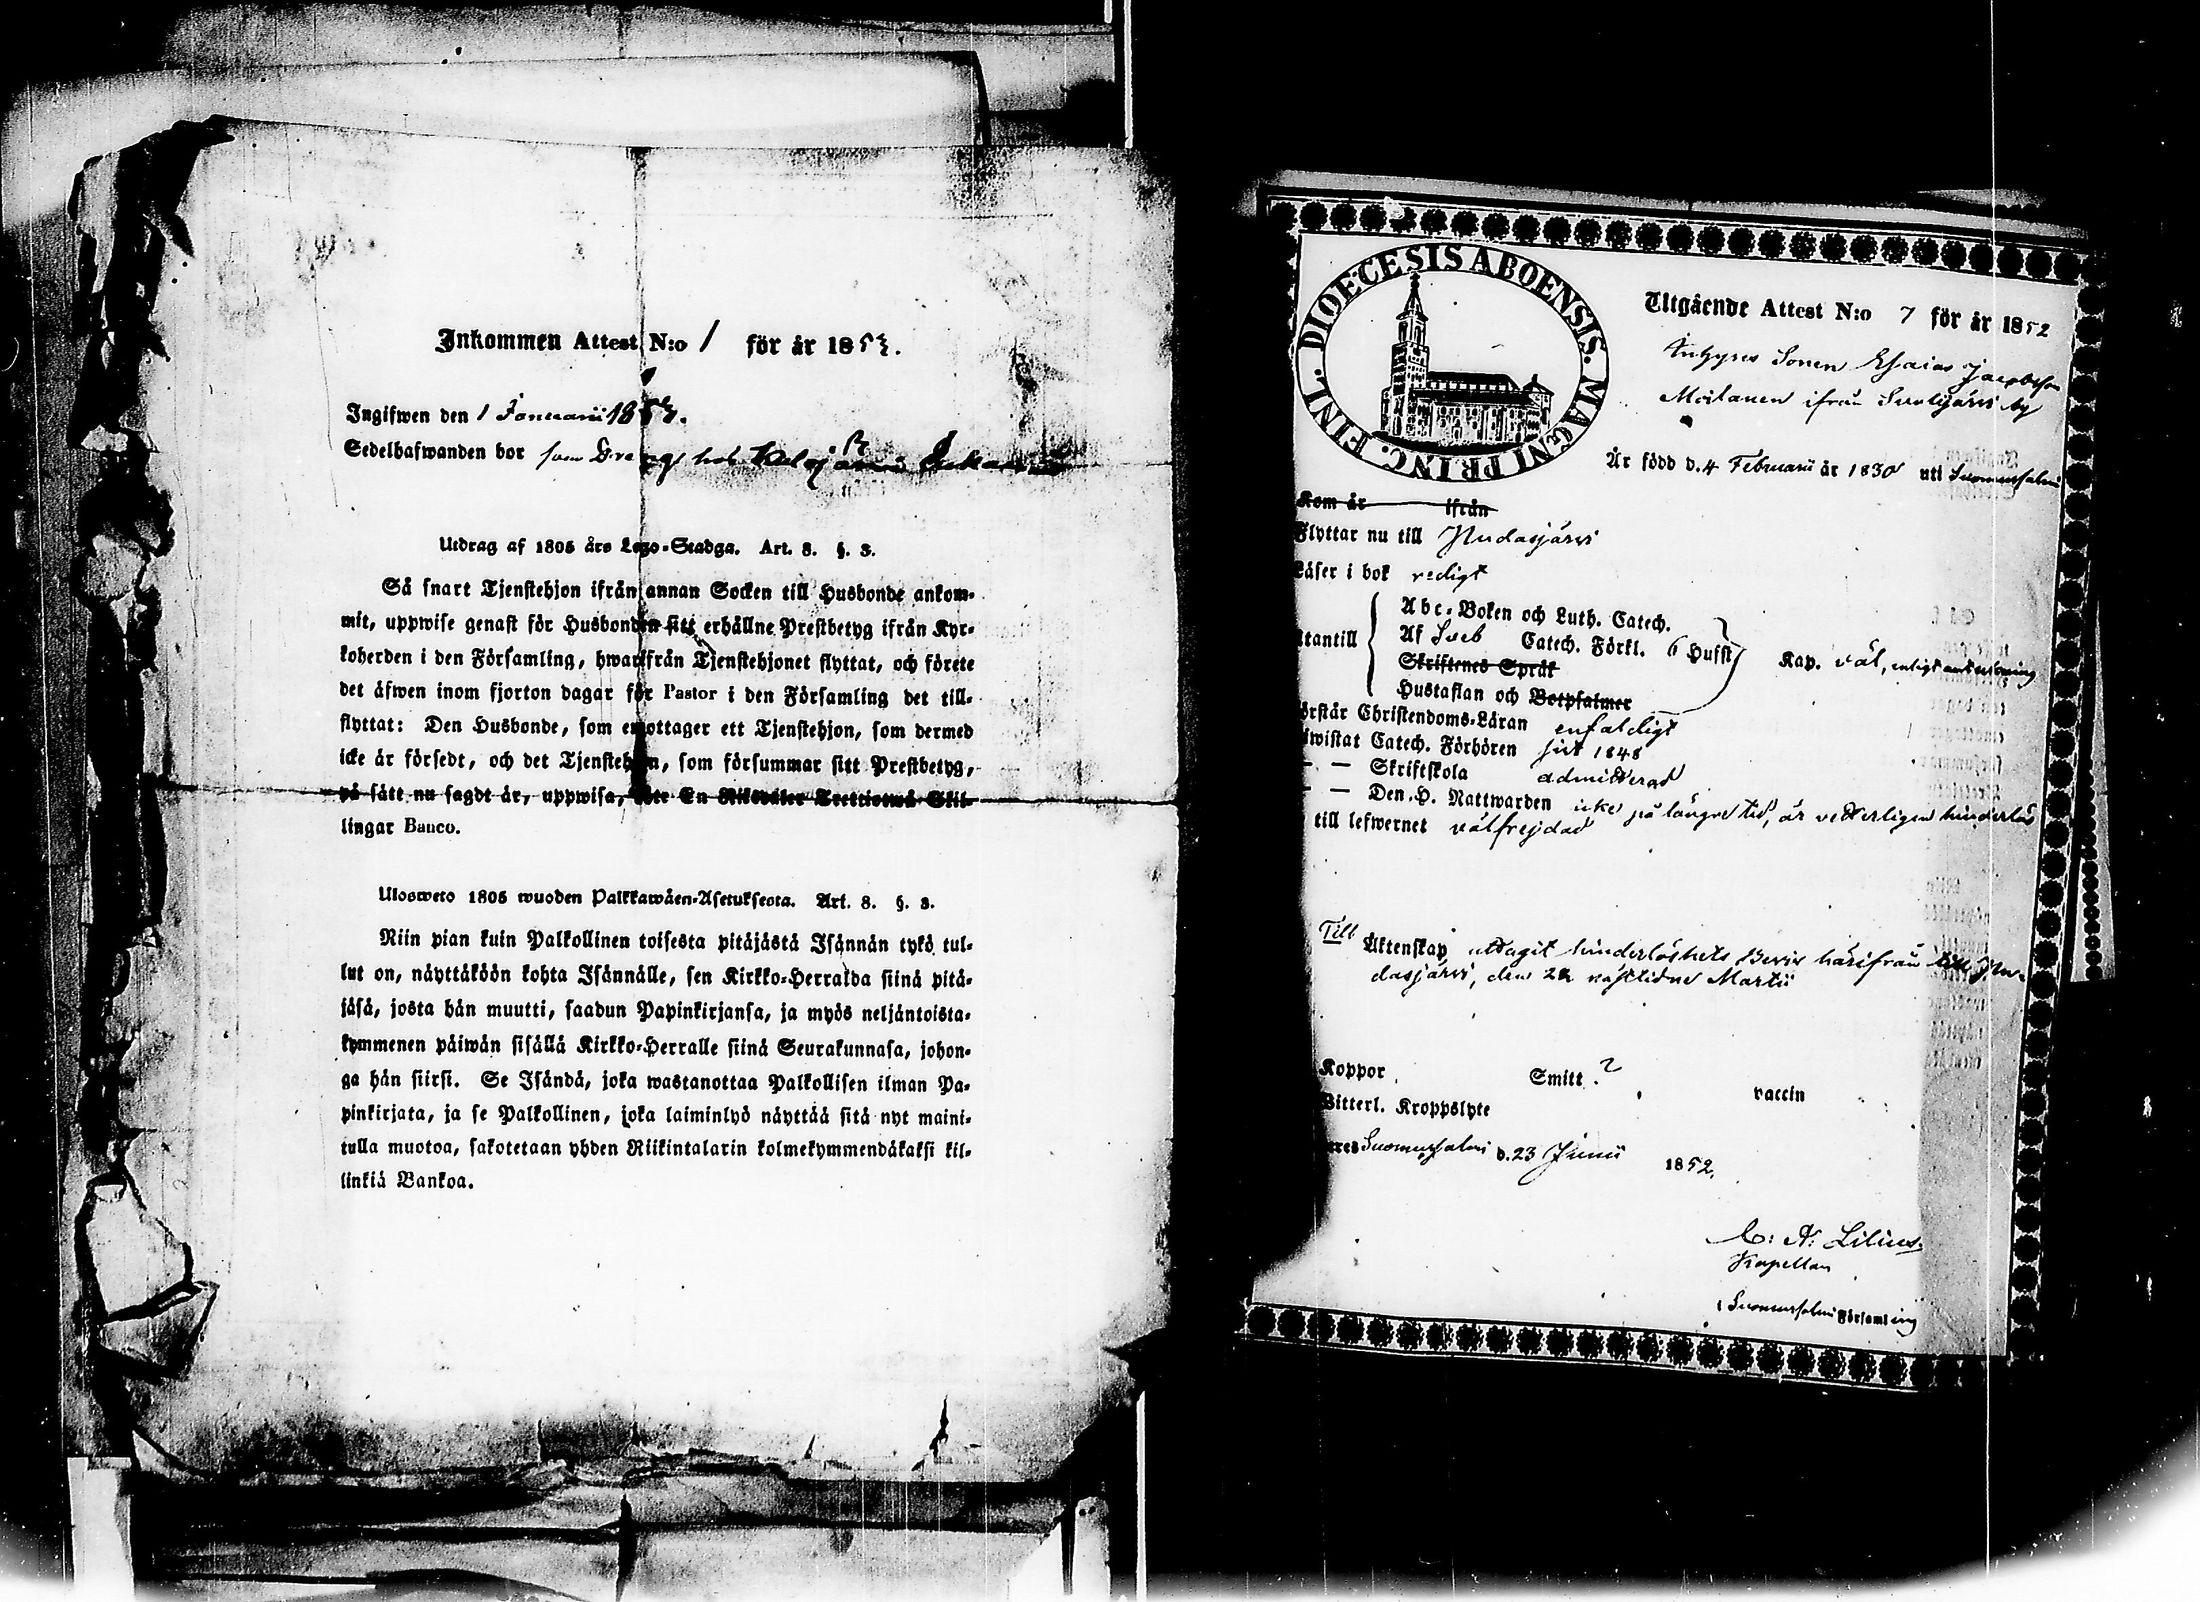 Inkommen Attest N:o 1 för år 1853.
Ingifwen den 1 Januarii 1853.
Sedelhafwanden bor som Dreng hos
Utdrag af 1805 års Lego-Stadga. Art. 8. §. 3.
Så snart Tjenstehjon ifrån annan Socken till Husbonde ankom-
mit, uppwise genast för Husbonden sitt erhållne Prestbetyg ifrån Kyr-
koherden i den Församling, hwarifrån Tjenstehjonet flyttat, och förete
det äfwen inom fjorton dagar för Pastor i den Församling det till-
flyttat: Den Husbonde, som emottager ett Tjenstehjon, som dermed
icke är försedt, och det Tjenstehjon, som försummar sitt Prestbetyg,
på sätt nu sagdt är, uppwisa, böte En Riksdaler Trettiotwå Skil-
lingar Banco.
Ulosweto 1805 wuoden Palkkawäen-Asetuksesta. Art. 8. §. 3.
Niin pian kuin Palkollinen toisesta pitäjästä Isännän tykö tul-
lut on, näyttäköön kohta Isännälle, sen Kirkko-Herralda siinä pitä-
jäsä, josta hän muutti, saadun Papinkirjansa, ja myös neljäntoista-
kymmenen päiwän sisällä Kirkko-Herralle siinä Seurakunnasa, johon-
ga hän siirsi. Se Isändä, joka wastanottaa Palkollisen ilman Pa-
pinkirjata, ja se Palkollinen, joka laiminlyö näyttää sitä nyt maini-
tulla muotoa, sakotetaan yhden Riikintalarin kolmekymmendäkaksi kil-
linkiä Bankoa.
DIOECESIS ABOENSIS. MAGNI PRINC. FINL.
Utgående Attest N:o 7 för år 1852
Inhyses Sonen Esaias Jacobsson
Moilanen ifrån by
Är född d. 4 Februarii år 1830 uti Suomussalmi
Kom år ifrån
Flyttar nu till Pudasjärvi
Läser i bok redigt
Utantill
Abc-Boken och Luth. Catech.
Af Sveb Catech. Förkl. 6 Hufst
Skriftenes Språk
Hustaflan och Botpsalmer
Kap. väl, enligt anteckning
örstår Christendoms-Läran enfaldigt
iwistat Catech. Förhören sist 1848
— — Skriftskola admitterad
— — Den H. Nattwarden icke på längre tid, är vetterligen hinderlös
till lefwernet välfrejdad
Till Äktenskap uttagit hinderlöshets Bevis härifrån till Pu-
dasjärvi, den 22 nästlidne Martii
Koppor Smitt ? vaccin
Witterl. Kroppslyte
Suomussalmi d. 23 Junii 1852.
C: A: Lilius.
Kapellan
i Suomussalmi Församling